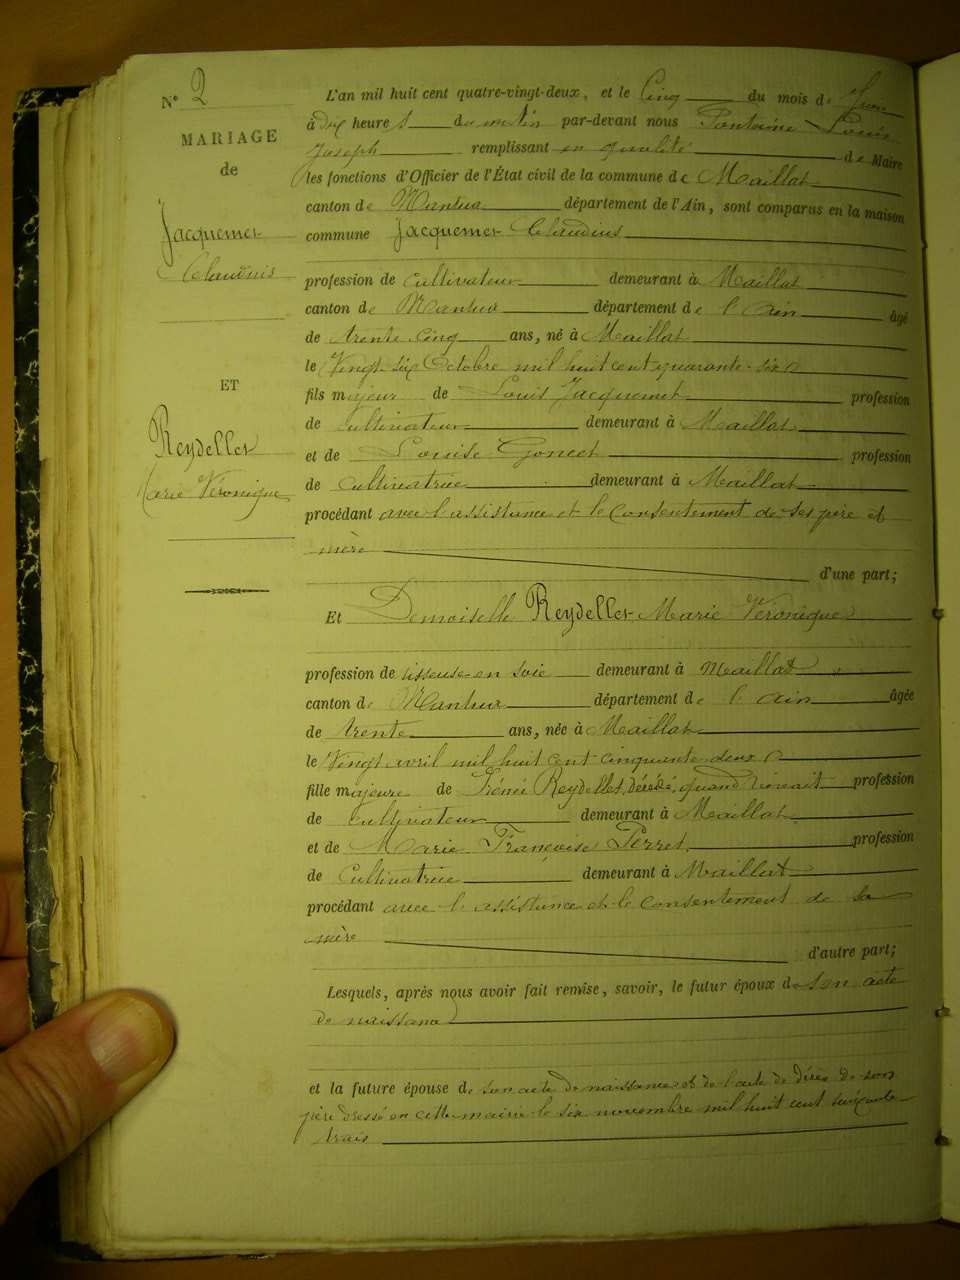 N° 2
MARIAGE
de
Jacquemet
Claudius
ET
Reydellet
Marie Véronique
L'an mil huit cent quatre-vingt-deux, et le Cinq du mois de
à dix heures du matin par-devant nous Fontaine Louis
Joseph remplissant en qualité de Maire
les fonctions d'Officier de l'État civil de la commune de Maillat
canton de Nantua département de l'Ain, sont comparus en la maison
commune Jacquemet Claudius
profession de cultivateur demeurant à Maillat
canton de Nantua département de l'ain âgé
de trente cinq ans, né à Maillat
le Vingt six Octobre mil huit cent quarante six
fils majeur de Louis Jacquemet profession
de cultivateur demeurant à Maillat
et de Louise Goncet profession
de cultivatrice demeurant à Maillat
procédant avec l'assistance et le consentement de ses père et
mère
d'une part;
Et Demoiselle Reydellet Marie Véronique
profession de tisseuse en soie demeurant à Maillat
canton de Nantua département de l'ain âgée
de trente ans, née à Maillat
le Vingt avril mil huit cent cinquante deux
fille majeure de Iréné Reydellet, décédé, quand vivait profession
de cultivateur demeurant à Maillat
et de Marie Françoise Perret profession
de Cultivatrice demeurant à Maillat
procédant avec l'assistance et le consentement de sa
mère
d'autre part;
Lesquels, après nous avoir fait remise, savoir, le futur époux de son acte
de naissance
et la future épouse de son acte de naissance et de l'acte de décès de son
père dressé en cette mairie le six novembre mil huit cent soixante
trois